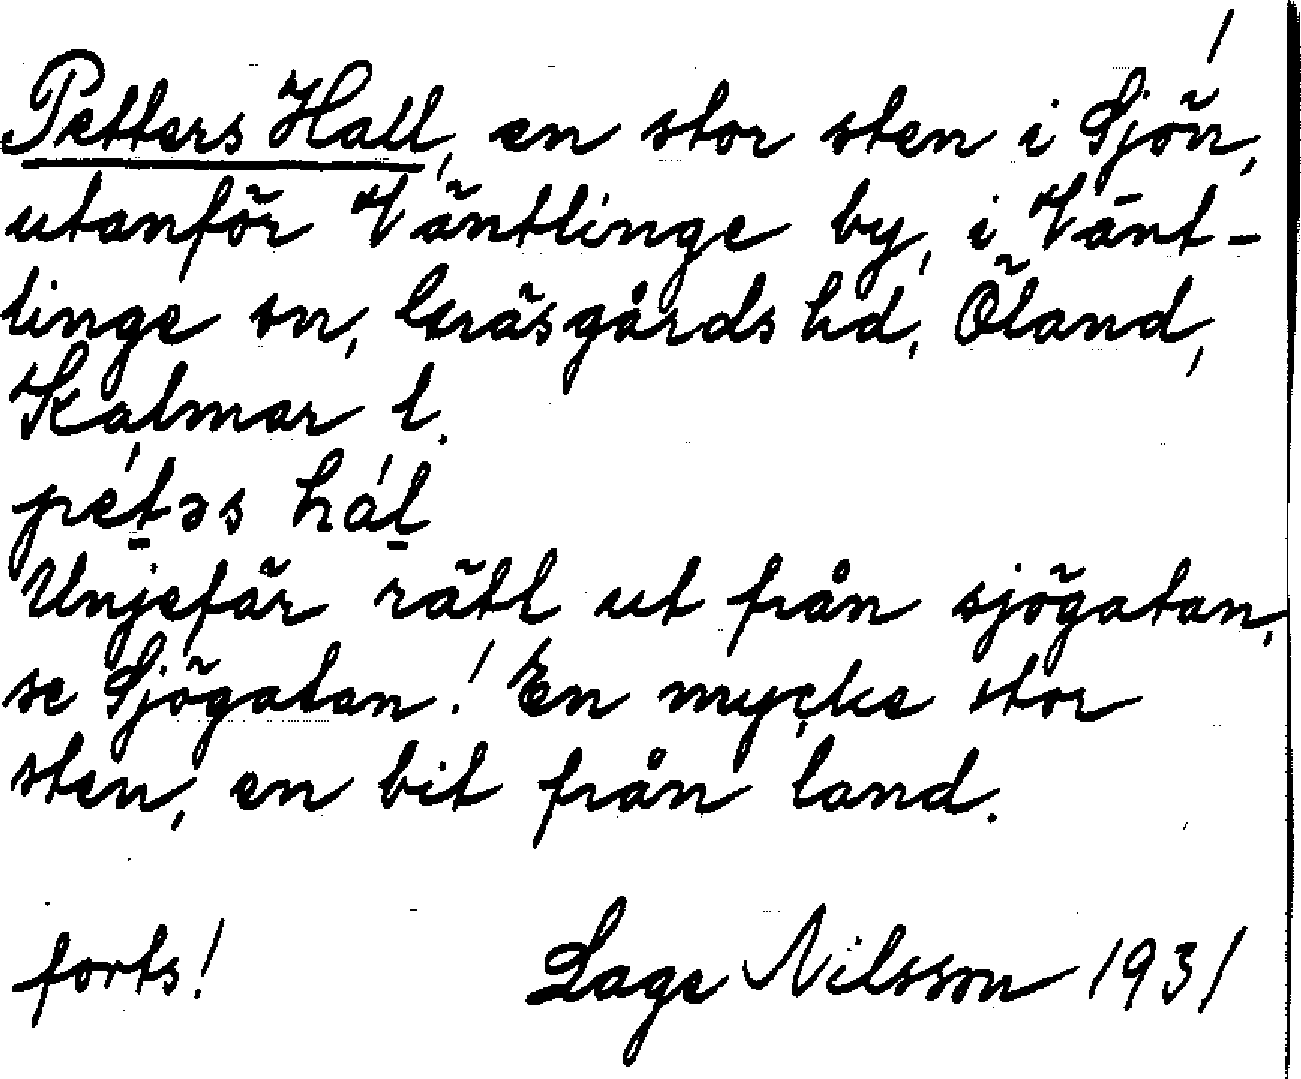 /
Petters Hall, en stor sten i Sjön,
utanför Väntlinge by, i Vänt-
linge sn, Gräsgårds hd, Öland,
Kalmar l.
pétəs hál
Unjefär rätt ut från sjögatan,
se Sjögatan! En mycke stor
sten, en bit från land.
forts! Lage Nilsson 1931